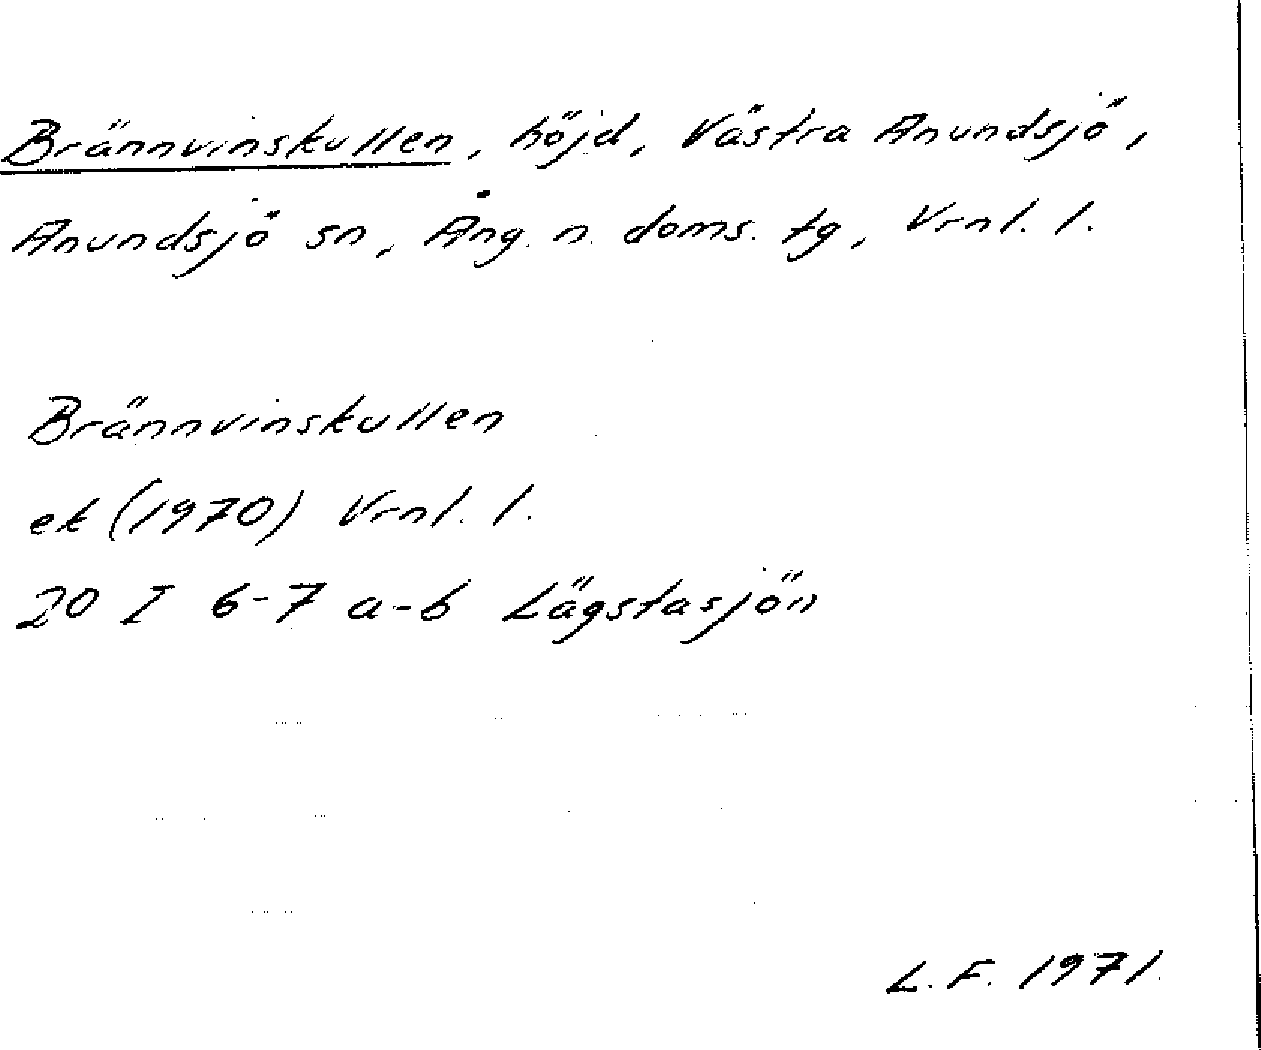 Brännvinskullen, höjd, Västra Anundsjö,
Anundsjö sn, Ång. n. doms. tg, Vrnl. l.
Brännvinskullen
ek (1970) Vrnl. l.
20 I 6-7 a-b Lägstasjön
L. F. 1971.